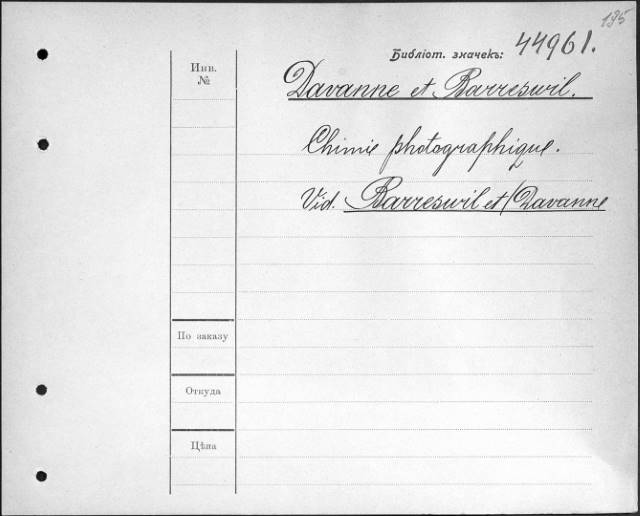 195
Библіот. значекъ: 44961.
Инв.
№
Davanne et Barreswil.
Chimie photographique.
Vid. Barreswil et Davanne
По заказу
Откуда
Цѣна